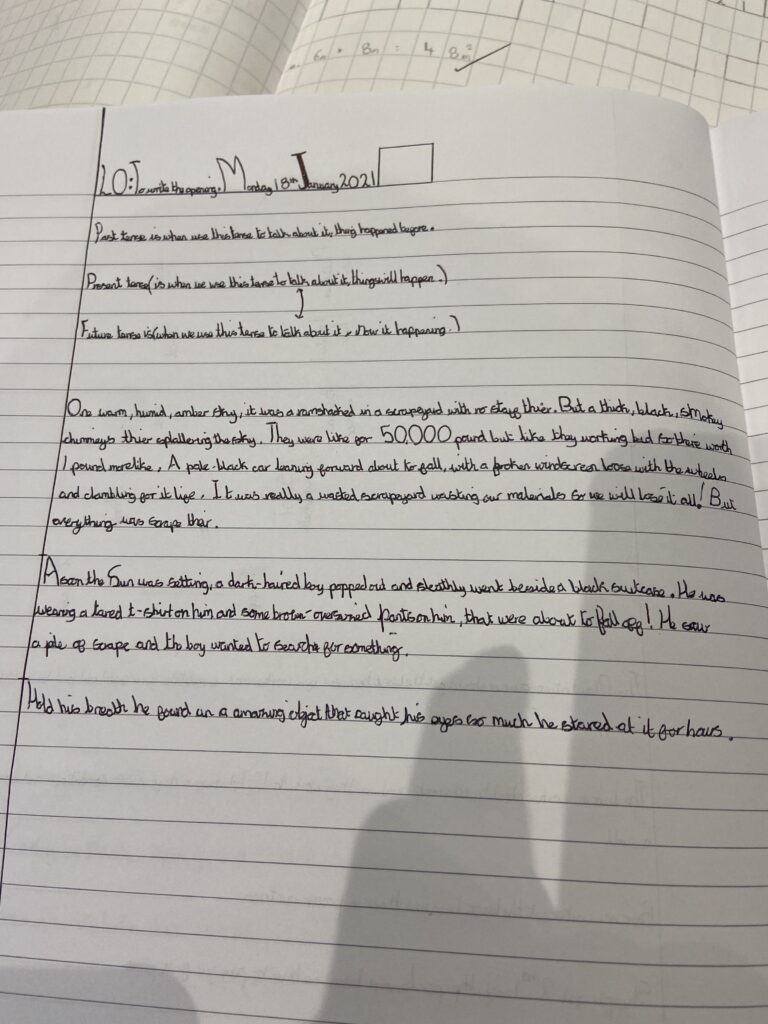 6m × 8m = 48m²
LO: To write the opening. Monday 18th January 2021
Past tense is when use this tense to talk about it, thing happened before.
Present tense (is when we use this tense to talk about it, things will happen.)
Future tense is (when we use this tense to talk about it, Now it happening.)
One warm, humid, amber sky, it was a ramshacked in a scrapeyard with no stays thier. But a thick, black, smokey
chimneys thier splattering the sky. They were like for 50,000 pound but like they working but for there worth
1 pound more like. A pale-black car leaning forward about to fall, with a broken windscreen loose with the wheels
and clambling for it life. It was really a wasted scrapeyard wasting our materials so we will lose it all! But
everything was scrape thier.
As on the Sun was setting, a dark-haired boy popped out and stealthly went besside a black suitcase. He was
wearing a tared t-shirt on him and some brown-oversized pants on him, that were about to fall off! He saw
a pile of scrape and th boy wanted to search for something.
Hold his breath he found an a amazing objet that caught his eyes so much he stared at it for hours.